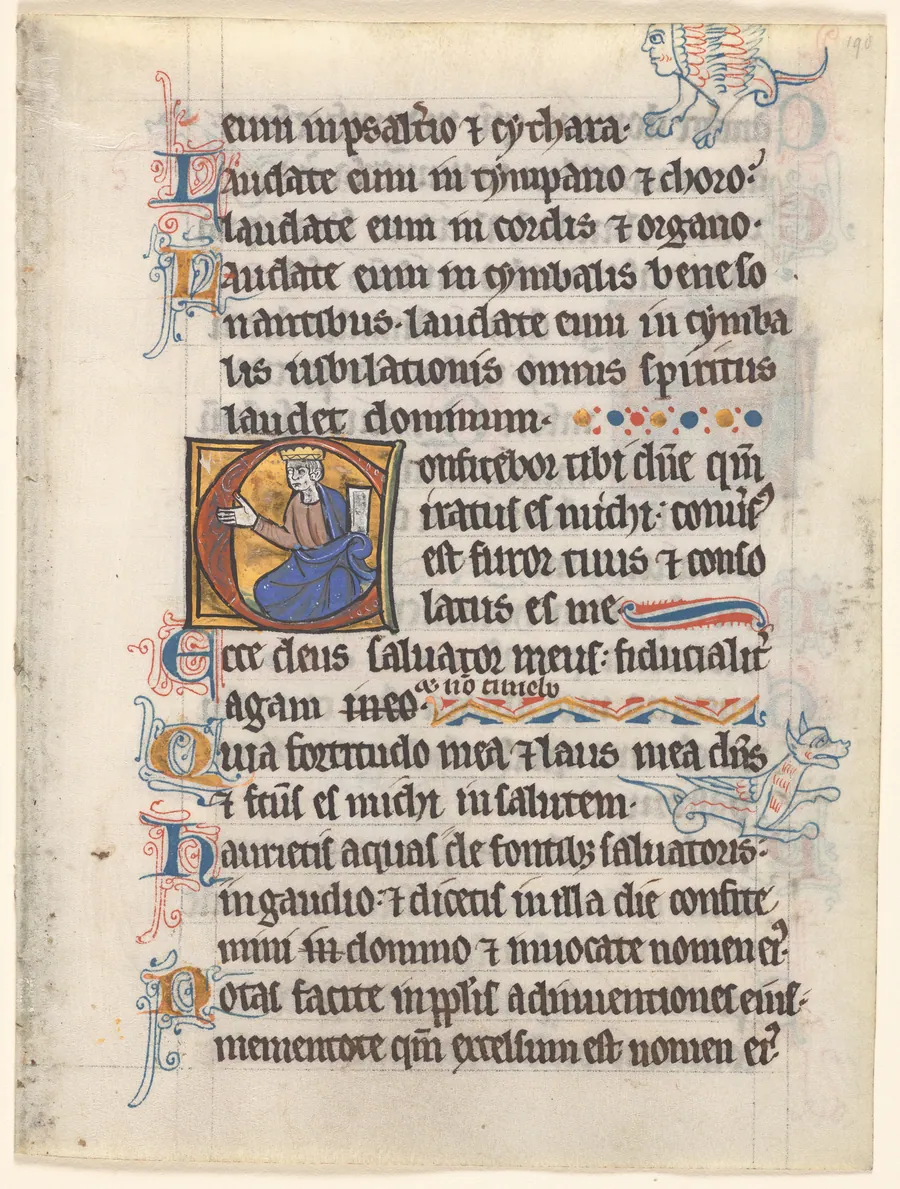 190
eum in psalt̄io ⁊ cythara·
Laudate eum in tympano ⁊ choro:
laudate eum in cordis ⁊ organo·
Laudate eum in cymbalis bene so
nantibus· laudate eum in cymba
lis iubilationis omnis spiritus
laudet dominum·
Confitebor tibi dn̄e qm̄
iratus es michi: conuēs̄
est furor tuus ⁊ conso
latus es me
Ecce deus saluator meus: fiducialit̄
agam in eo· ⁊ nō timebo
Quia fortitudo mea ⁊ laus mea dn̄s
⁊ fc̄us es michi in salutem·
Haurietis aquas de fontibꝫ saluatoris:
in gaudio: ⁊ dicetis in illa die confite
mini in domino ⁊ inuocate nomen ei᾿·
Notas facite in ppl̄is adinuentiones eius·
mementote qm̄ excelsum est nomen ei᾿·